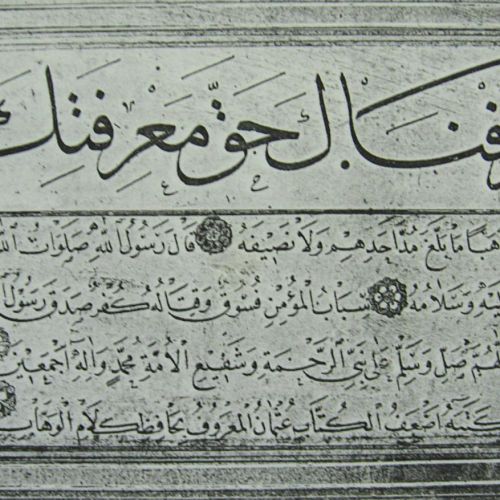 فناك حق معرفتك
هبا ما بلغ مد احدهم ولا نصيفه قال رسول الله صلوات الله
وسلامه سباب المؤمن فسوق وقتاله كفر صدق رسول
صل وسلم على نبي الرحمة وشفيع الأمة محمد واله اجمعين
كتبه اضعف الكتاب عثمان المعروف بحافظ كلام الوهاب